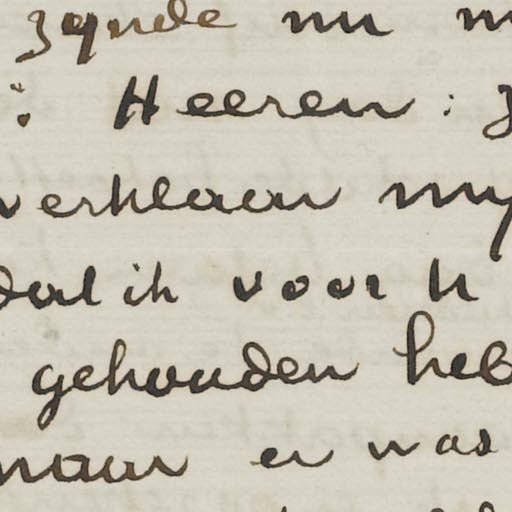 zynde nu
: Heeren :
verklaar my
dat ik voor U
gehouden heb
maar er was